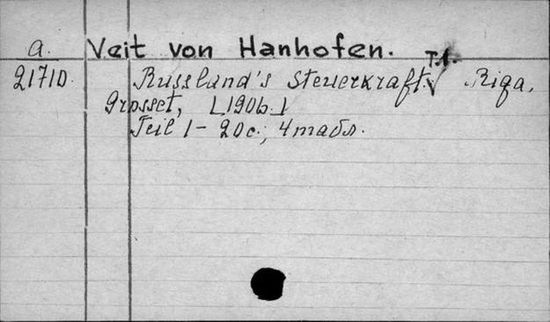 a. Veit von Hanhofen.
T.1.
21710. Russland's Steuerkraft. Riga,
Grosset, [190b.]
Teil 1 - 20 c., 4 табл.